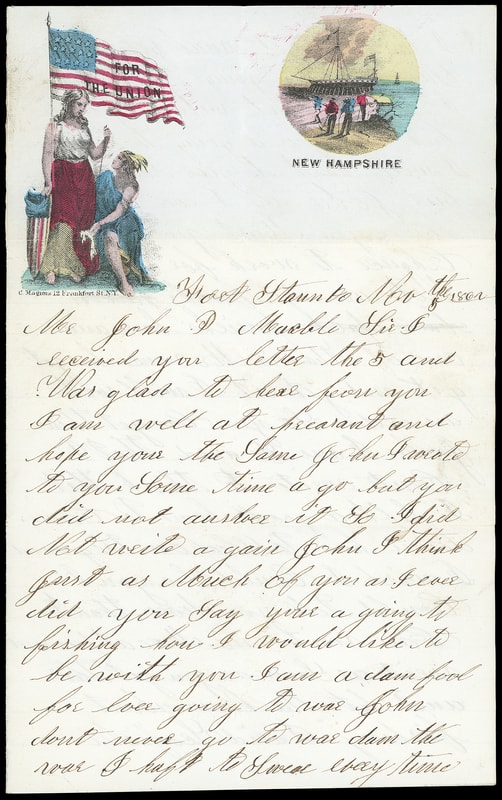 FOR
THE UNION
NEW HAMPSHIRE
C. Magnus 12 Frankfort St. N.Y.
Fort Staunto Nov the 5 1862
Mr John D Marble Sir I
received you letter the 5 and
Was glad to here from you
I am well at preasant and
hope your the Same John I wrote
to you Some time a go but you
did not answer it So I did
Not write a gain John I think
Just as Much of you as I ever
did you Say your a going to
fishing how I would like to
be with you I am a dam fool
for ever going to war John
dont never go to war dam the
war I haft to Swear every time